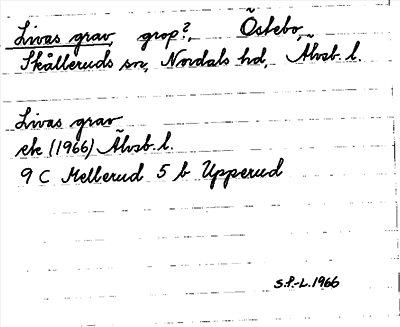 Livas grav, grop?, Östebo,
Skålleruds sn, Nordals hd, Älvsb. l.
Livas grav
ek (1966) Älvsb. l.
9 C Mellerud 5 b Upperud
S.P.-L. 1966